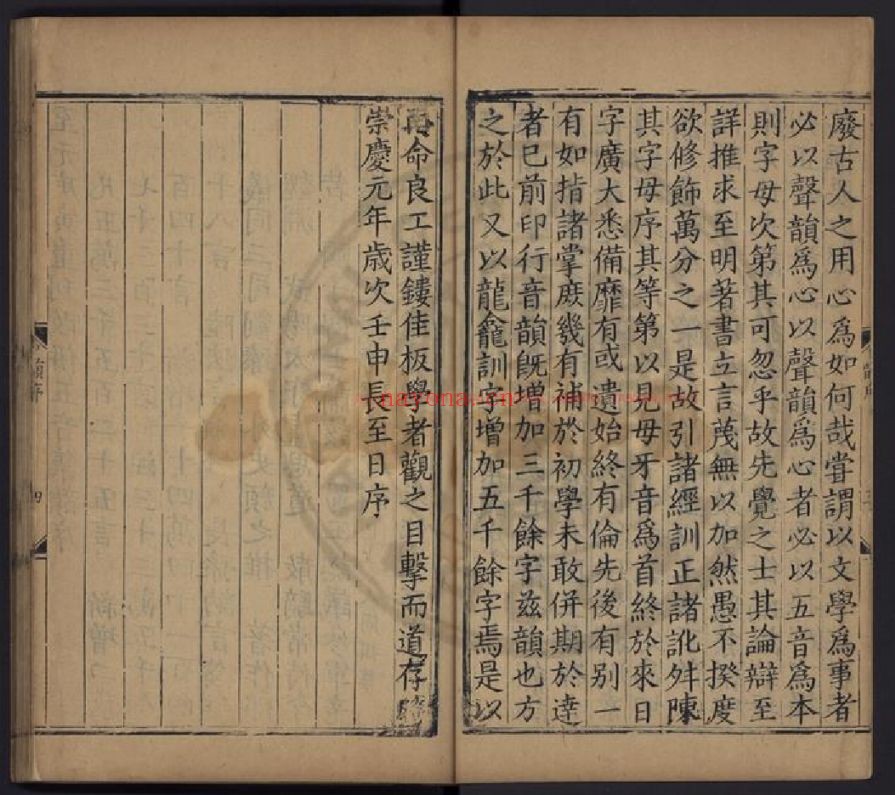 廢古人之用心為如何哉嘗謂以文學為事者
必以聲韻為心以聲韻為心者必以五音為本
則字母次第其可忽乎故先覺之士其論辯至
詳推求至明著書立言蔑無以加然愚不揆度
欲修飾萬分之一是故引諸經訓正諸訛舛陳
其字母序其等第以見母牙音爲首終於來日
字廣大悉備靡有或遺始終有倫先後有别一
有如指諸掌庻幾有補於初學未敢併期於達
者已前印行音韻旣増加三千餘字兹韻也方
之於此又以龍龕訓字增加五千餘字焉是以
再命良工謹鏤佳板學者觀之目擊而道存
崇慶元年歳次壬申長至日序
韻序
四